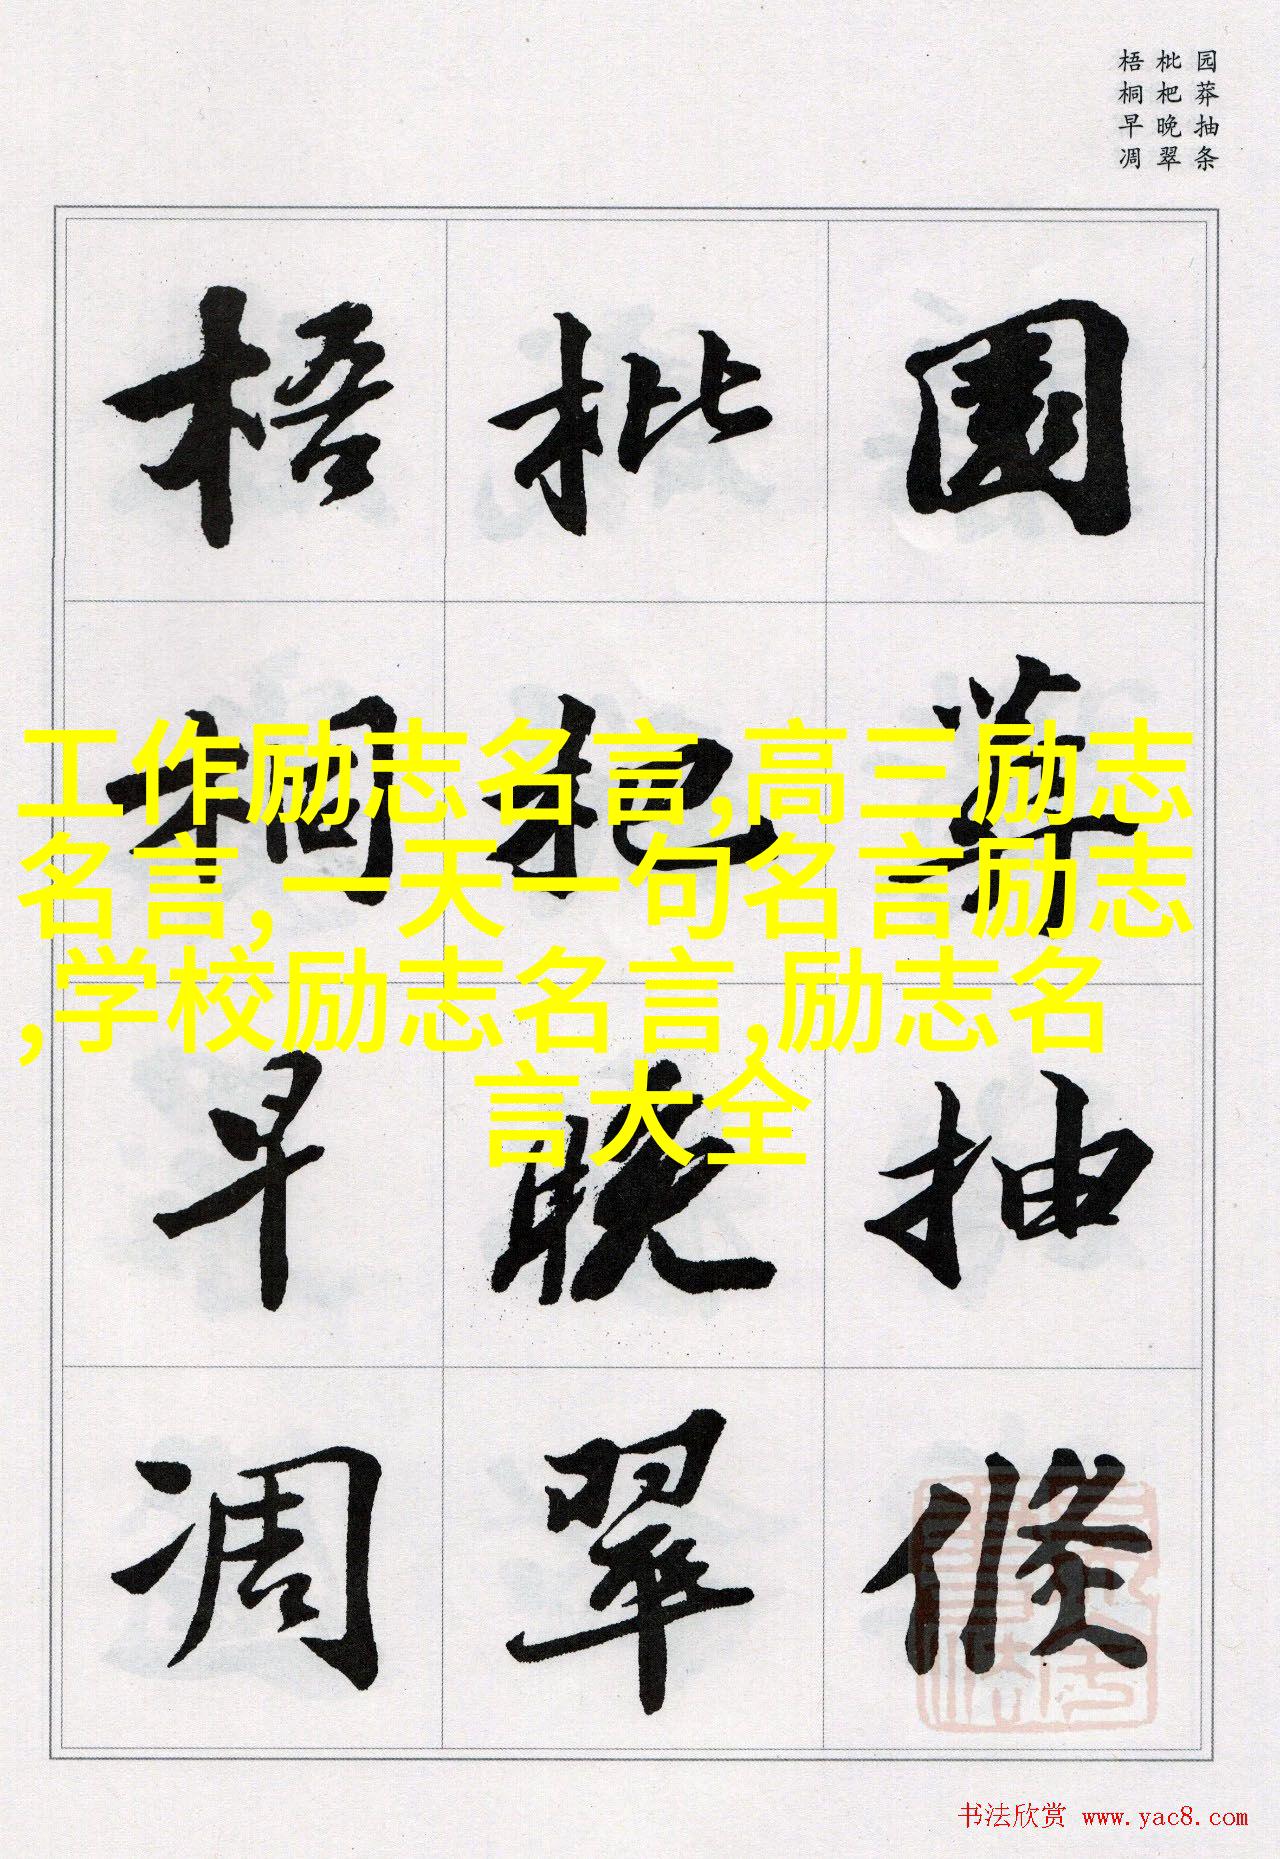 园莽抽条
枇杷晚翠
梧桐早凋
園莽抽條
枇杷晚翠
梧桐早凋
工作励志名言,高三励志
名言,一天一句名言励志
,学校励志名言,励志名
言大全
书法欣赏 www.yac8.com